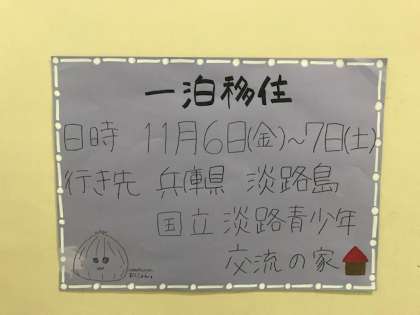 一泊移住
日時 11月6日(金)~7日(土)
行き先 兵庫県 淡路島
国立淡路青少年
交流の家